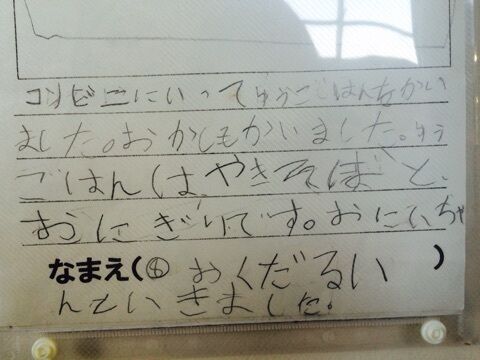 コンビニにいってゆうごはんをかい
ました。おかしもかいました。ゆう
ごはんはやきそばと、
おにぎりです。おにいちゃ
なまえ(⑥ おくだるい)
んといきました。